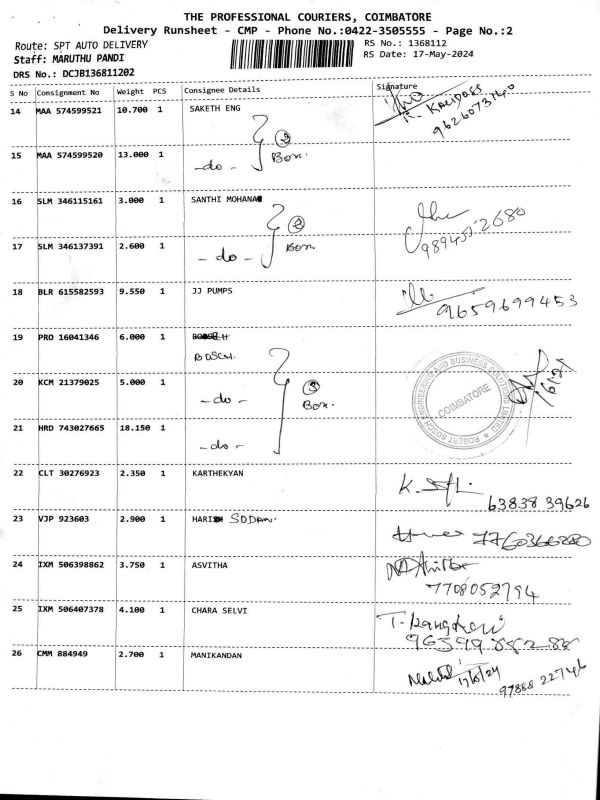 THE PROFESSIONAL COURIERS, COIMBATORE
Delivery Runsheet - CMP - Phone No.:0422-3505555 - Page No.:2
Route: SPT AUTO DELIVERY
RS No.: 1368112
Staff: MARUTHU PANDI
RS Date: 17-May-2024
DRS No.: DCJB136811202
S No Consignment No Weight PCS Consignee Details Signature
14 MAA 574599521 10.700 1 SAKETH ENG
R. KALIDASS
9626073140
15 MAA 574599520 13.000 1 -do- 2 Box.
16 SLM 346115161 3.000 1 SANTHI MOHANA
17 SLM 346137391 2.600 1 -do- 2 Box.
18 BLR 615582593 9.550 1 JJ PUMPS 9659699453
19 PRO 16041346 6.000 1 BOSCH.
20 KCM 21379025 5.000 1 -do- 3 Box.
ROBERT BOSCH ENGINEERING AND BUSINESS SOLUTIONS LIMITED
COIMBATORE
21 HRD 743027665 18.150 1 -do-
22 CLT 30276923 2.350 1 KARTHEKYAN
63838 39626
23 VJP 923603 2.900 1 HARI SODAN.
24 IXM 506398862 3.750 1 ASVITHA
7708052794
25 IXM 506407378 4.100 1 CHARA SELVI
26 CMM 884949 2.700 1 MANIKANDAN
17/5/24
97888 22746